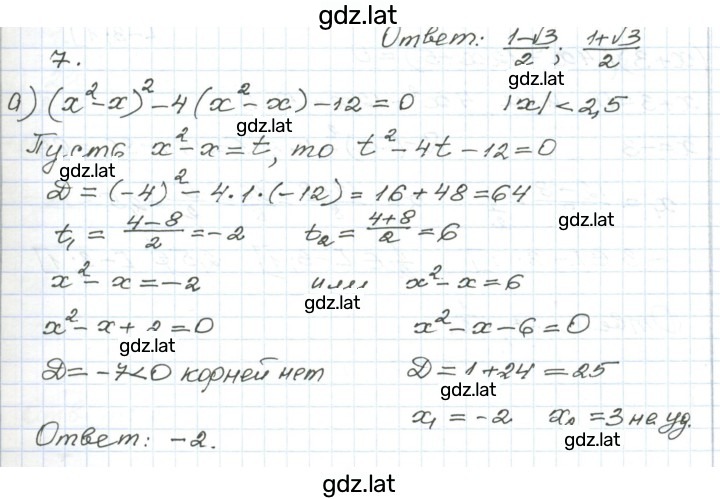 gdz.lat
Ответ: (1-√3)/2; (1+√3)/2
7.
gdz.lat
а) (x²-x)²-4(x²-x)-12=0 |x|<2,5
gdz.lat
Пусть x²-x=t, то t²-4t-12=0
gdz.lat
D=(-4)²-4·1·(-12)=16+48=64
gdz.lat
t₁=(4-8)/2=-2 t₂=(4+8)/2=6
x²-x=-2 или x²-x=6
gdz.lat
x²-x+2=0 x²-x-6=0
gdz.lat
D=-7<0 корней нет D=1+24=25
gdz.lat
x₁=-2 x₂=3 не уд.
Ответ: -2.
gdz.lat
gdz.lat